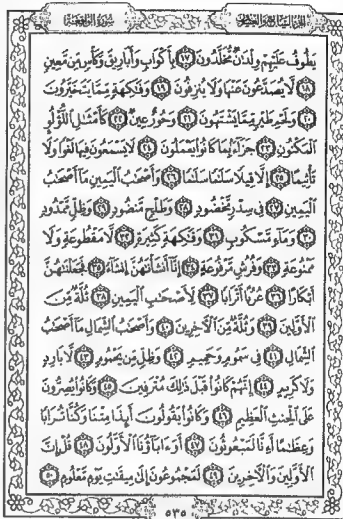 الجزء السابع والعشرون سورة الواقعة
يَطُوفُ عَلَيْهِمْ وِلْدَٰنٌ مُّخَلَّدُونَ ١٧ بِأَكْوَابٍ وَأَبَارِيقَ وَكَأْسٍ مِّن مَّعِينٍ
١٨ لَّا يُصَدَّعُونَ عَنْهَا وَلَا يُنزِفُونَ ١٩ وَفَٰكِهَةٍ مِّمَّا يَتَخَيَّرُونَ
٢٠ وَلَحْمِ طَيْرٍ مِّمَّا يَشْتَهُونَ ٢١ وَحُورٌ عِينٌ ٢٢ كَأَمْثَٰلِ اللُّؤْلُؤِ
الْمَكْنُونِ ٢٣ جَزَآءً بِمَا كَانُوا۟ يَعْمَلُونَ ٢٤ لَا يَسْمَعُونَ فِيهَا لَغْوًا وَلَا
تَأْثِيمًا ٢٥ إِلَّا قِيلًا سَلَٰمًا سَلَٰمًا ٢٦ وَأَصْحَٰبُ الْيَمِينِ مَآ أَصْحَٰبُ
الْيَمِينِ ٢٧ فِى سِدْرٍ مَّخْضُودٍ ٢٨ وَطَلْحٍ مَّنضُودٍ ٢٩ وَظِلٍّ مَّمْدُودٍ
٣٠ وَمَآءٍ مَّسْكُوبٍ ٣١ وَفَٰكِهَةٍ كَثِيرَةٍ ٣٢ لَّا مَقْطُوعَةٍ وَلَا
مَمْنُوعَةٍ ٣٣ وَفُرُشٍ مَّرْفُوعَةٍ ٣٤ إِنَّآ أَنشَأْنَٰهُنَّ إِنشَآءً ٣٥ فَجَعَلْنَٰهُنَّ
أَبْكَارًا ٣٦ عُرُبًا أَتْرَابًا ٣٧ لِّأَصْحَٰبِ الْيَمِينِ ٣٨ ثُلَّةٌ مِّنَ
الْأَوَّلِينَ ٣٩ وَثُلَّةٌ مِّنَ الْءَاخِرِينَ ٤٠ وَأَصْحَٰبُ الشِّمَالِ مَآ أَصْحَٰبُ
الشِّمَالِ ٤١ فِى سَمُومٍ وَحَمِيمٍ ٤٢ وَظِلٍّ مِّن يَحْمُومٍ ٤٣ لَّا بَارِدٍ
وَلَا كَرِيمٍ ٤٤ إِنَّهُمْ كَانُوا۟ قَبْلَ ذَٰلِكَ مُتْرَفِينَ ٤٥ وَكَانُوا۟ يُصِرُّونَ
عَلَى الْحِنثِ الْعَظِيمِ ٤٦ وَكَانُوا۟ يَقُولُونَ أَئِذَا مِتْنَا وَكُنَّا تُرَابًا
وَعِظَٰمًا أَءِنَّا لَمَبْعُوثُونَ ٤٧ أَوَءَابَآؤُنَا الْأَوَّلُونَ ٤٨ قُلْ إِنَّ
الْأَوَّلِينَ وَالْءَاخِرِينَ ٤٩ لَمَجْمُوعُونَ إِلَىٰ مِيقَٰتِ يَوْمٍ مَّعْلُومٍ ٥٠
٥٣٥